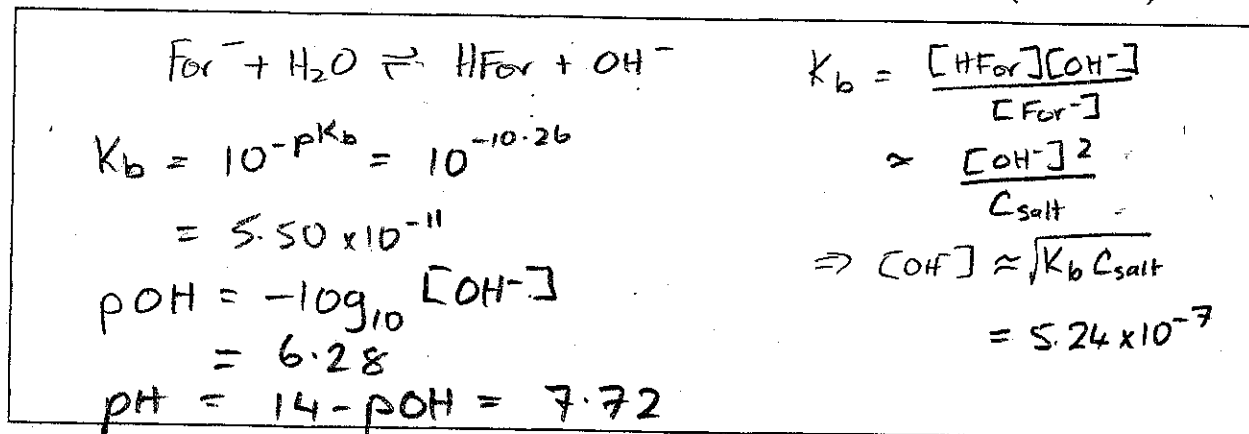 For⁻ + H₂O ⇌ HFor + OH⁻
K_b = 10^-pK_b = 10^-10.26
= 5.50 x 10^-11
pOH = -log₁₀ [OH-]
= 6.28
pH = 14 - pOH = 7.72
K_b = [HFor][OH-] / [For-]
≈ [OH-]² / C_salt
⇒ [OH⁻] ≈ √(K_b C_salt)
= 5.24 x 10^-7